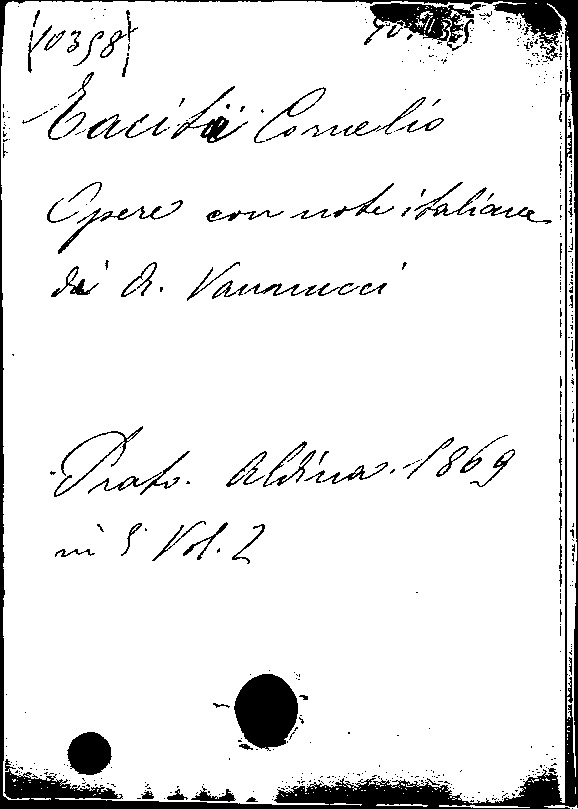 (10358)
Taciti Cornelio
Opere con note italiane
di A. Vannucci
Prato. Aldina. 1869
in 8° Vol. 2